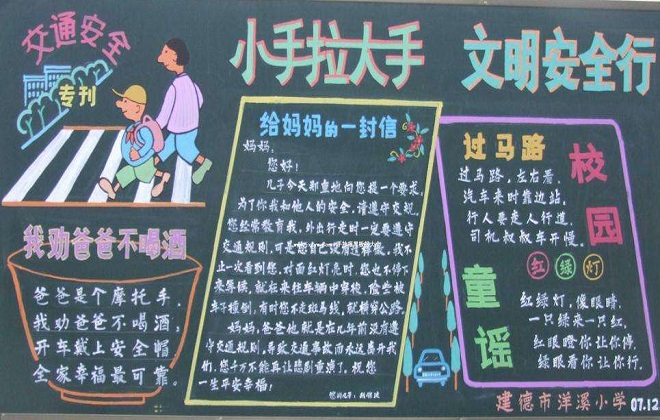 交通安全
专刊
小手拉大手 文明安全行
给妈妈的一封信
妈妈:
您好!
儿子今天郑重地向您提一个要求,
为了你我和他人的安全,请遵守交规。
您经常教育我,外出行走时一定要遵守
交通规则,可是您自己没有这样做。我不
止一次看到您,对面红灯亮时,您也不停下
来等候,就在来往车辆中穿梭,险些被
车子撞倒,有时您不走斑马线,就横穿公路。
妈妈,爸爸他就是在几年前没有遵
守交通规则,导致交通事故而永远离开我
们,您千万不能再让悲剧重演了。祝您
一生平安幸福!
您的儿子:
我劝爸爸不喝酒
爸爸是个摩托手,
我劝爸爸不喝酒;
开车戴上安全帽,
全家幸福最可靠。
校园童谣
过马路
过马路,左右看,
汽车来时靠边站,
行人要走人行道,
司机叔叔车开慢。
红绿灯
红绿灯,像眼睛,
一只绿来一只红,
红眼瞪你让你停,
绿眼看你让你行。
建德市洋溪小学 07.12